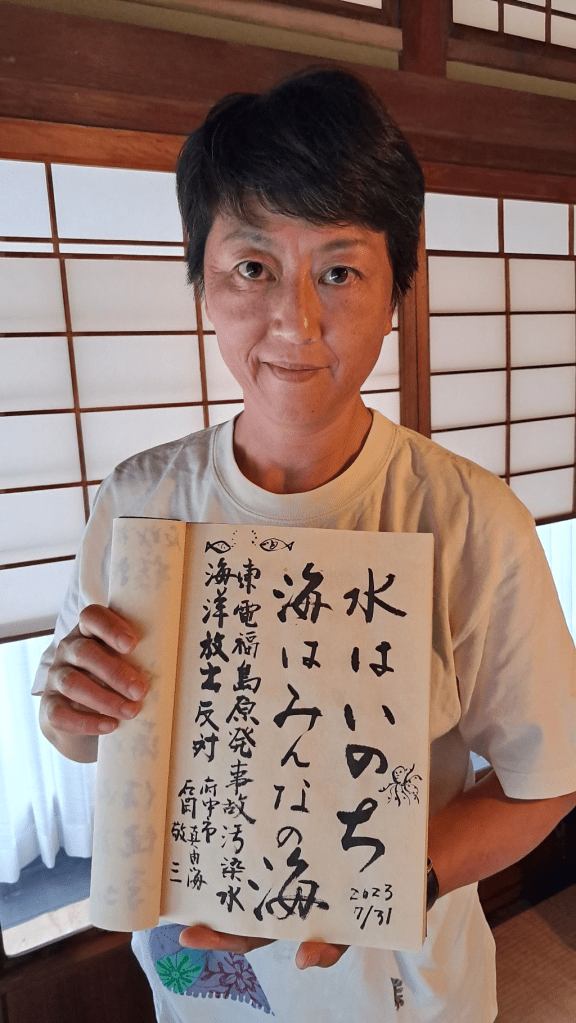 水はいのち
2023
7/31
海はみんなの海
東電福島原発事故汚染水
海洋放出反対
府中市
真由海
敬三